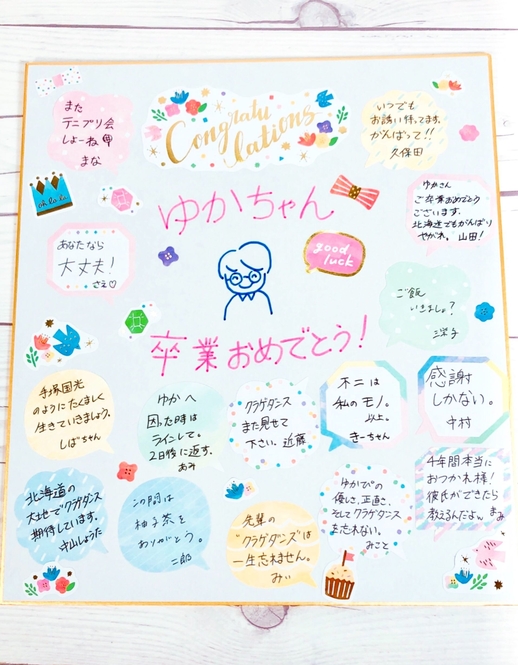 また
テニプリ会
しよーね
まな
Congratu
lations
いつでも
お誘い待ってます。
がんばって!!
久保田
oh la la
ゆかちゃん
ゆかさん
ご卒業おめでとう
ございます。
北海道でもがんばり
やがれ。山田!
あなたなら
大丈夫!
さえ♡
good
luck
ご飯
いきましょ?
卒業おめでとう!
手塚国光
のようにたくましく
生きていきましょう。
しばちゃん
ゆかへ
困った時は
ラインして。
2日後に返す。
あみ
クラゲダンス
また見せて
下さい。近藤
不二は
私のモノ。
以上。
きーちゃん
感謝
しかない。
中村
北海道の
大地でクラゲダンス
期待しています。
守山しょうた
この間は
柚子茶を
ありがとう。
二郎
先輩の
"クラゲダンス"は
一生忘れません。
みい
ゆかぴの
優しさ、正直さ、
そしてクラゲダンス
を忘れない。
みこと
4年間本当に
おつかれ様!
彼氏ができたら
教えるんだよん まぁ